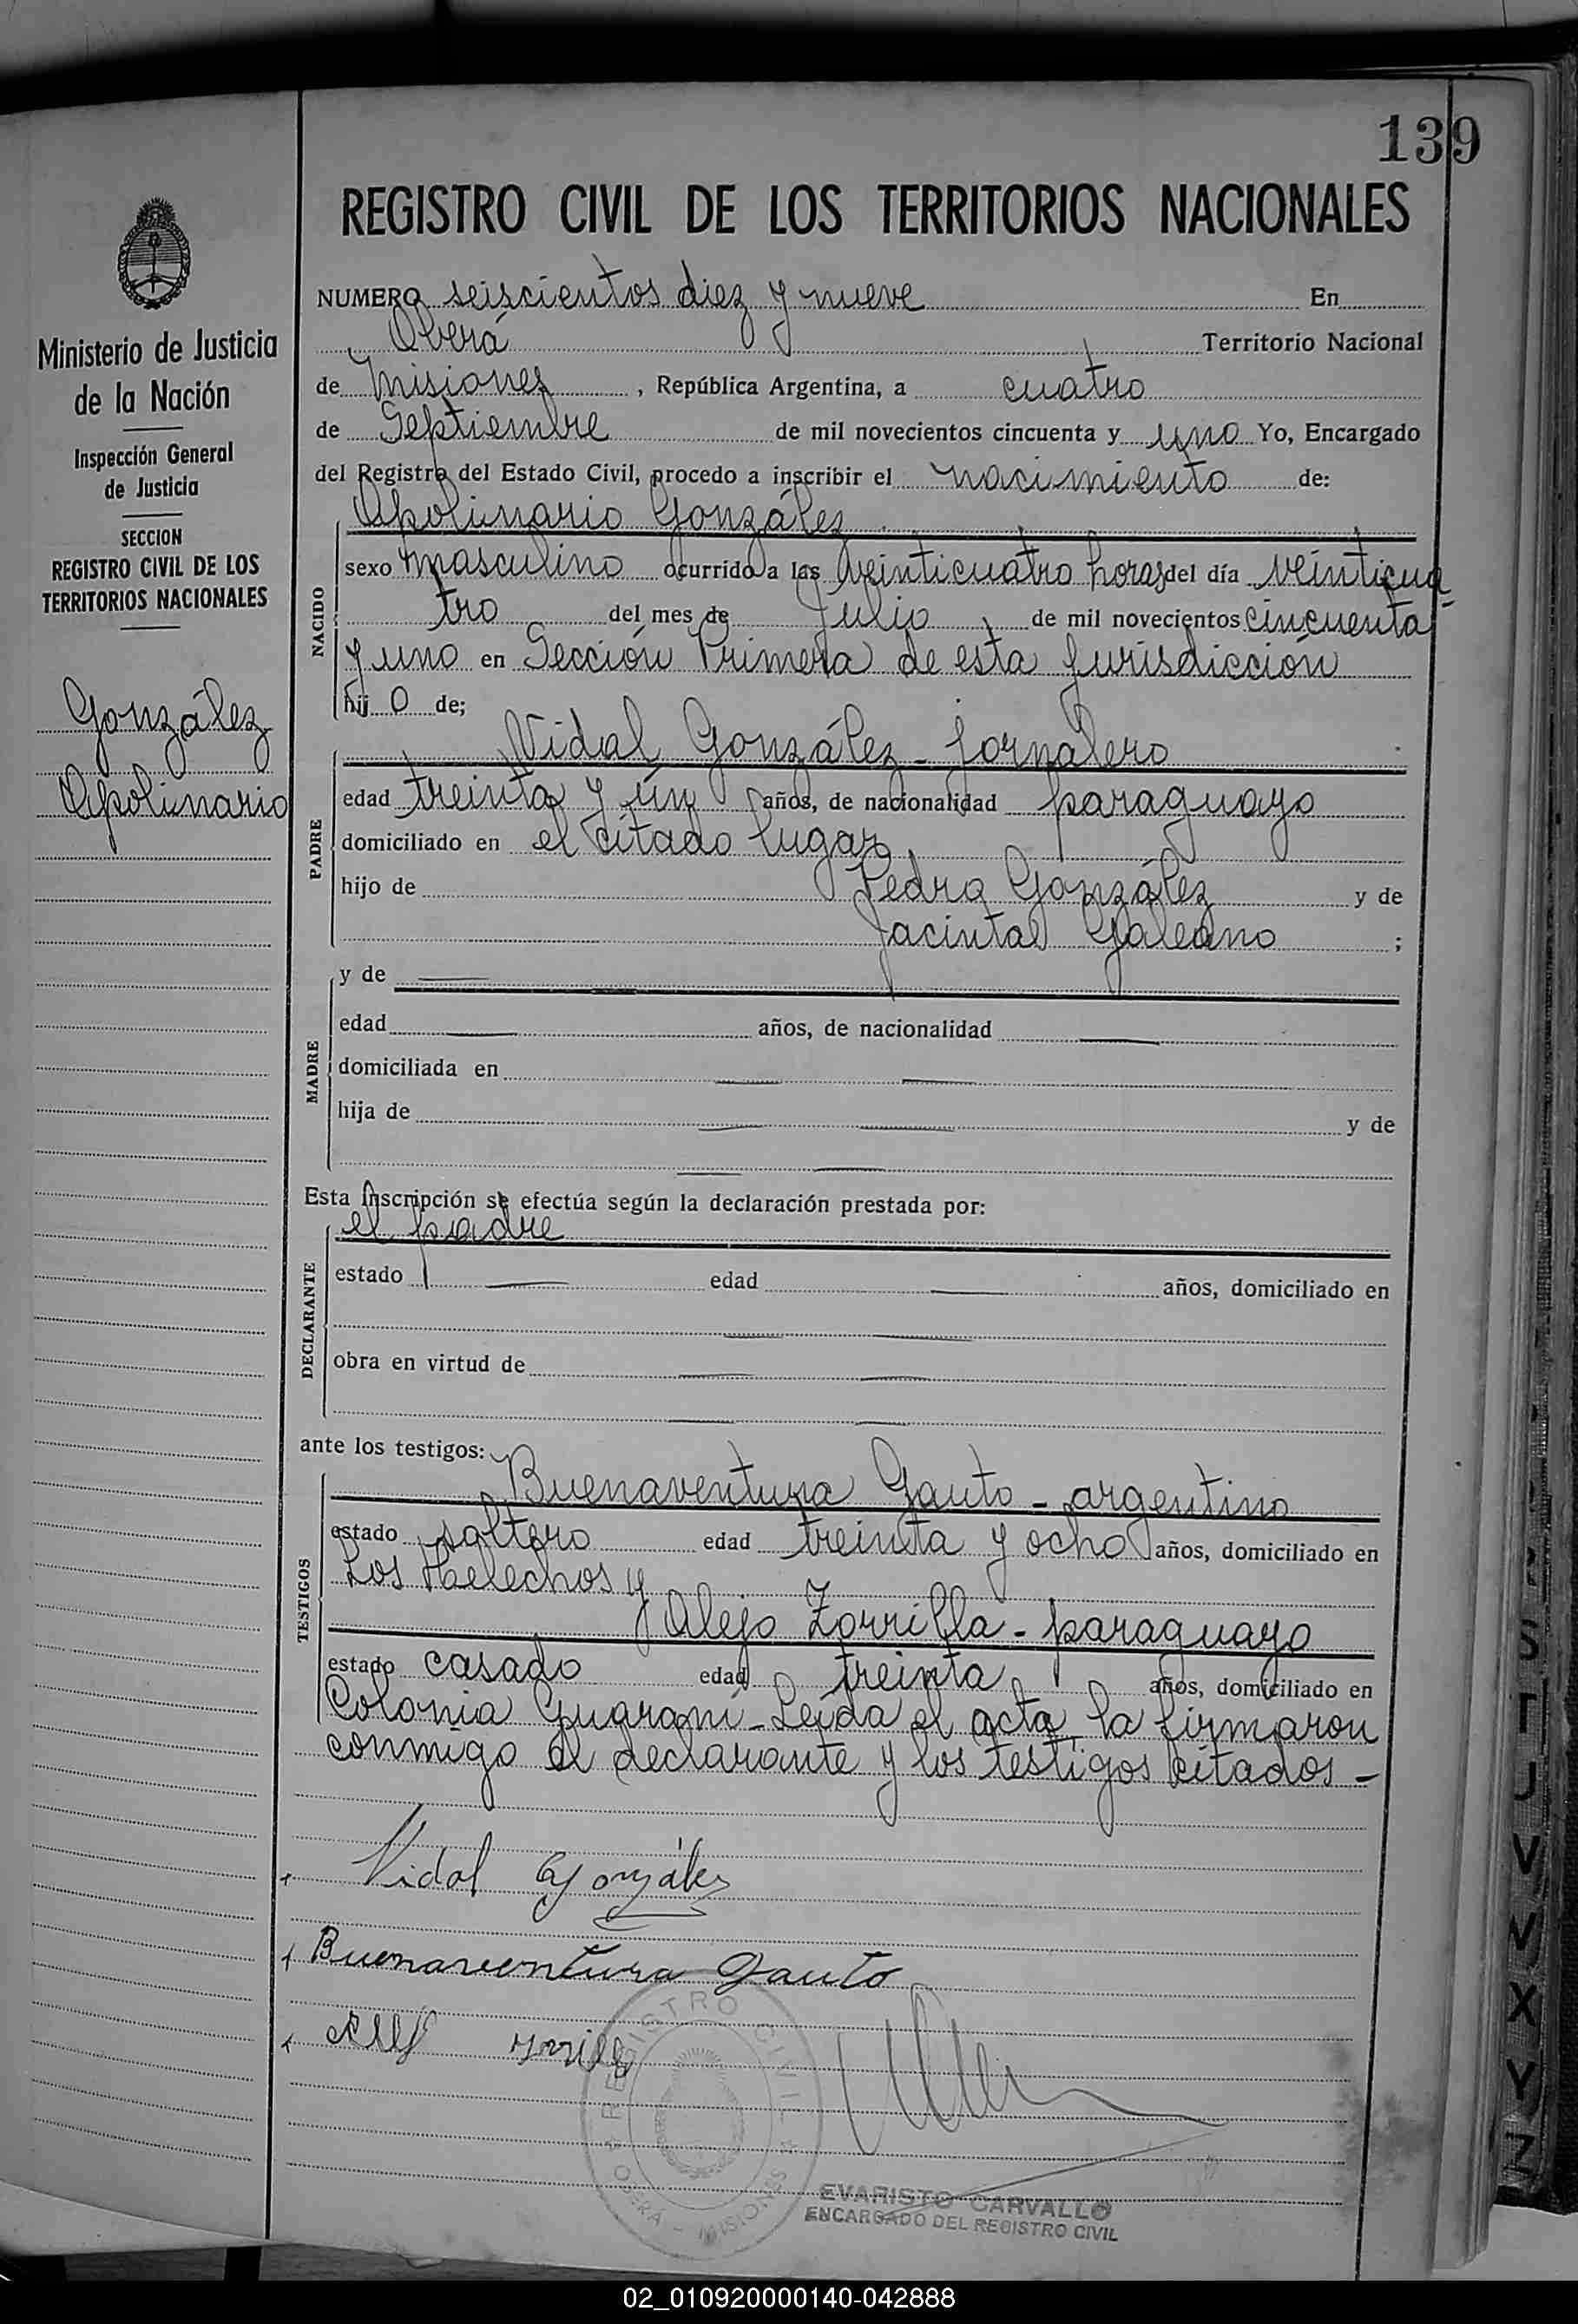 139
REGISTRO CIVIL DE LOS TERRITORIOS NACIONALES
Ministerio de Justicia
de la Nación
Inspección General
de Justicia
SECCION
REGISTRO CIVIL DE LOS
TERRITORIOS NACIONALES
González
Apolinario
NUMERO seiscientos diez y nueve En
Oberá Territorio Nacional
de Misiones, República Argentina, a cuatro
de Septiembre de mil novecientos cincuenta y uno Yo, Encargado
del Registro del Estado Civil, procedo a inscribir el nacimiento de:
Apolinario González
NACIDO
sexo masculino ocurrido a las veinticuatro horas del día veinticua
tro del mes de Julio de mil novecientos cincuenta
y uno en Sección Primera de esta Jurisdicción
hijo de;
Vidal González - Jornalero
PADRE
edad treinta y ún años, de nacionalidad paraguayo
domiciliado en el citado lugar
hijo de Pedro González y de
Jacinta Galeano ;
y de
MADRE
edad años, de nacionalidad
domiciliada en
hija de y de
Esta inscripción se efectúa según la declaración prestada por:
el padre
DECLARANTE
estado edad años, domiciliado en
obra en virtud de
ante los testigos:
Buenaventura Gauto - argentino
TESTIGOS
estado soltero edad treinta y ocho años, domiciliado en
Los Helechos y
Alejo Zorrilla - paraguayo
estado casado edad treinta años, domiciliado en
Colonia Guaraní - Leída el acta, la firmaron
conmigo el declarante y los testigos citados -
Vidal González
Buenaventura Gauto
REGISTRO CIVIL
OBERA - MISIONES
EVARISTO CARVALLO
ENCARGADO DEL REGISTRO CIVIL
S
T
J
V
V
X
Y
Z
02_010920000140-042888